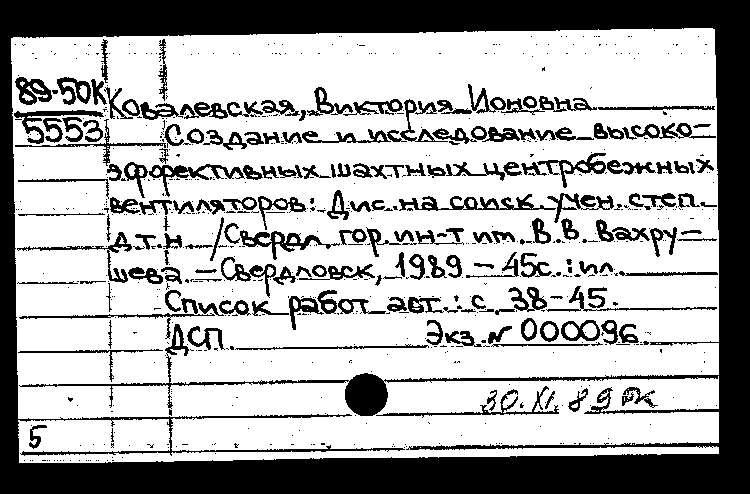 89-50К
5553
Ковалевская, Виктория Ионовна
Создание и исследование высоко-
эффективных шахтных центробежных
вентиляторов: Дис. на соиск. учен. степ.
д.т.н. /Свердл. гор. ин-т им. В.В. Вахру-
шева. – Свердловск, 1989 – 45с. : ил.
Список работ авт.: с. 38-45.
ДСП. Экз. № 000096.
30.XI.89
5